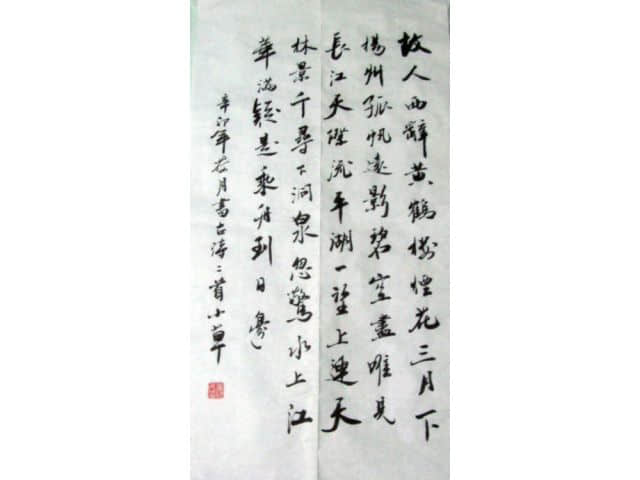 故人西辭黃鶴樓煙花三月下
揚州孤帆遠影碧空盡唯見
長江天際流平湖一望上連天
林景千尋下洞泉忽驚水上江
華滿疑是乘舟到日邊
辛卯年月書古詩二首小草